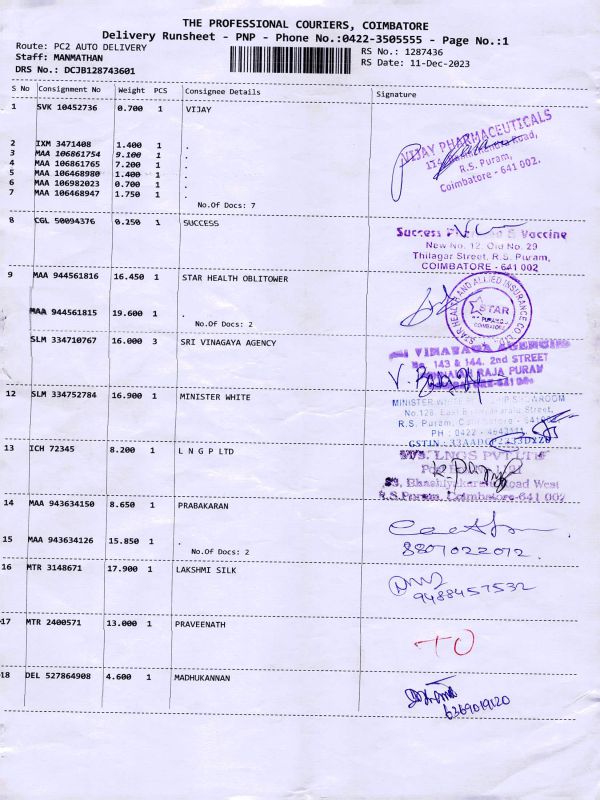 THE PROFESSIONAL COURIERS, COIMBATORE
Delivery Runsheet - PNP - Phone No.:0422-3505555 - Page No.:1
Route: PC2 AUTO DELIVERY
RS No.: 1287436
Staff: MANMATHAN
RS Date: 11-Dec-2023
DRS No.: DCJB128743601
S No Consignment No Weight PCS Consignee Details Signature
1 SVK 10452736 0.700 1 VIJAY
VIJAY PHARMACEUTICALS
R.S. Puram,
Coimbatore - 641 002.
2 IXM 3471408 1.400 1 .
3 MAA 106861754 9.100 1 .
4 MAA 106861765 7.200 1 .
5 MAA 106468980 1.400 1 .
6 MAA 106982023 0.700 1 .
7 MAA 106468947 1.750 1 .
No.Of Docs: 7
8 CGL 50094376 0.250 1 SUCCESS
Success Vaccine
New No. 12, Old No. 29
Thilagar Street, R.S. Puram,
COIMBATORE - 641 002
9 MAA 944561816 16.450 1 STAR HEALTH OBLITOWER
STAR HEALTH AND ALLIED INSURANCE CO LTD
STAR
COIMBATORE
MAA 944561815 19.600 1 .
No.Of Docs: 2
SLM 334710767 16.000 3 SRI VINAGAYA AGENCY
SRI VINAYAGA AGENCIES
No. 143 & 144, 2nd STREET
RAJA PURAM
12 SLM 334752784 16.900 1 MINISTER WHITE
MINISTER WHITE SHOWROOM
No.128, East Street,
R.S. Puram,
PH : 0422 -
GSTIN:
13 ICH 72345 8.200 1 L N G P LTD
LNGS PVT LTD
Road West
R.S.Puram, Coimbatore-641 002
14 MAA 943634150 8.650 1 PRABAKARAN
15 MAA 943634126 15.850 1 .
No.Of Docs: 2
8807022072.
16 MTR 3148671 17.900 1 LAKSHMI SILK
9488457532
17 MTR 2400571 13.000 1 PRAVEENATH
TO
18 DEL 527864908 4.600 1 MADHUKANNAN
6369019120